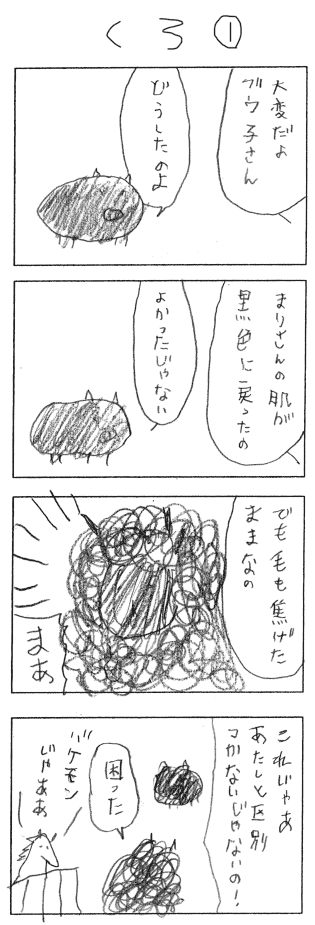 くろ①
大変だよ
ブウ子さん
どうしたのよ
まりさんの肌が
黒色に戻ったの
よかったじゃない
でも毛も焦げた
ままなの
まあ
これじゃあ
あたしと区別
つかないじゃないの!
困った
バケモン
じゃああ